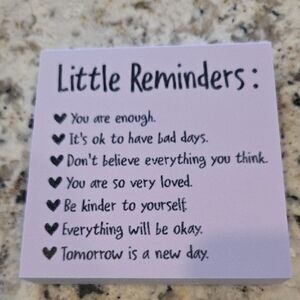 Little Reminders:
♥ You are enough.
♥ It's ok to have bad days.
♥ Don't believe everything you think.
♥ You are so very loved.
♥ Be kinder to yourself.
♥ Everything will be okay.
♥ Tomorrow is a new day.